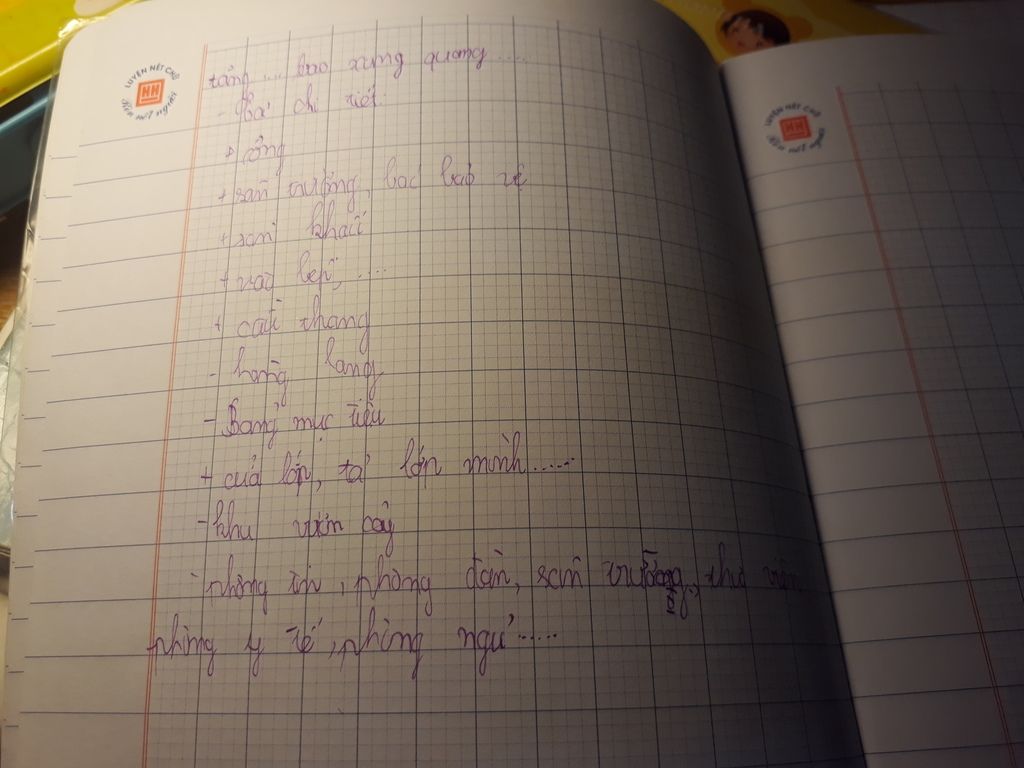 LUYỆN NÉT CHỮ
HH
RÈN NẾT NGƯỜI
LUYỆN NÉT CHỮ
HH
RÈN NẾT NGƯỜI
tảng ... bao xung quang ....
- Tả chi tiết
+ cổng
+ sân trường, bác bảo vệ
+ sân khấu
+ nhà bếp, ....
+ cầu thang
- hành lang
- Bảng mục tiêu
+ cửa lớp, tả lớp mình .....
- khu vườn cây
- phòng tin, phòng đàn, sân trường, thư viện
phòng y tế, phòng ngủ .....